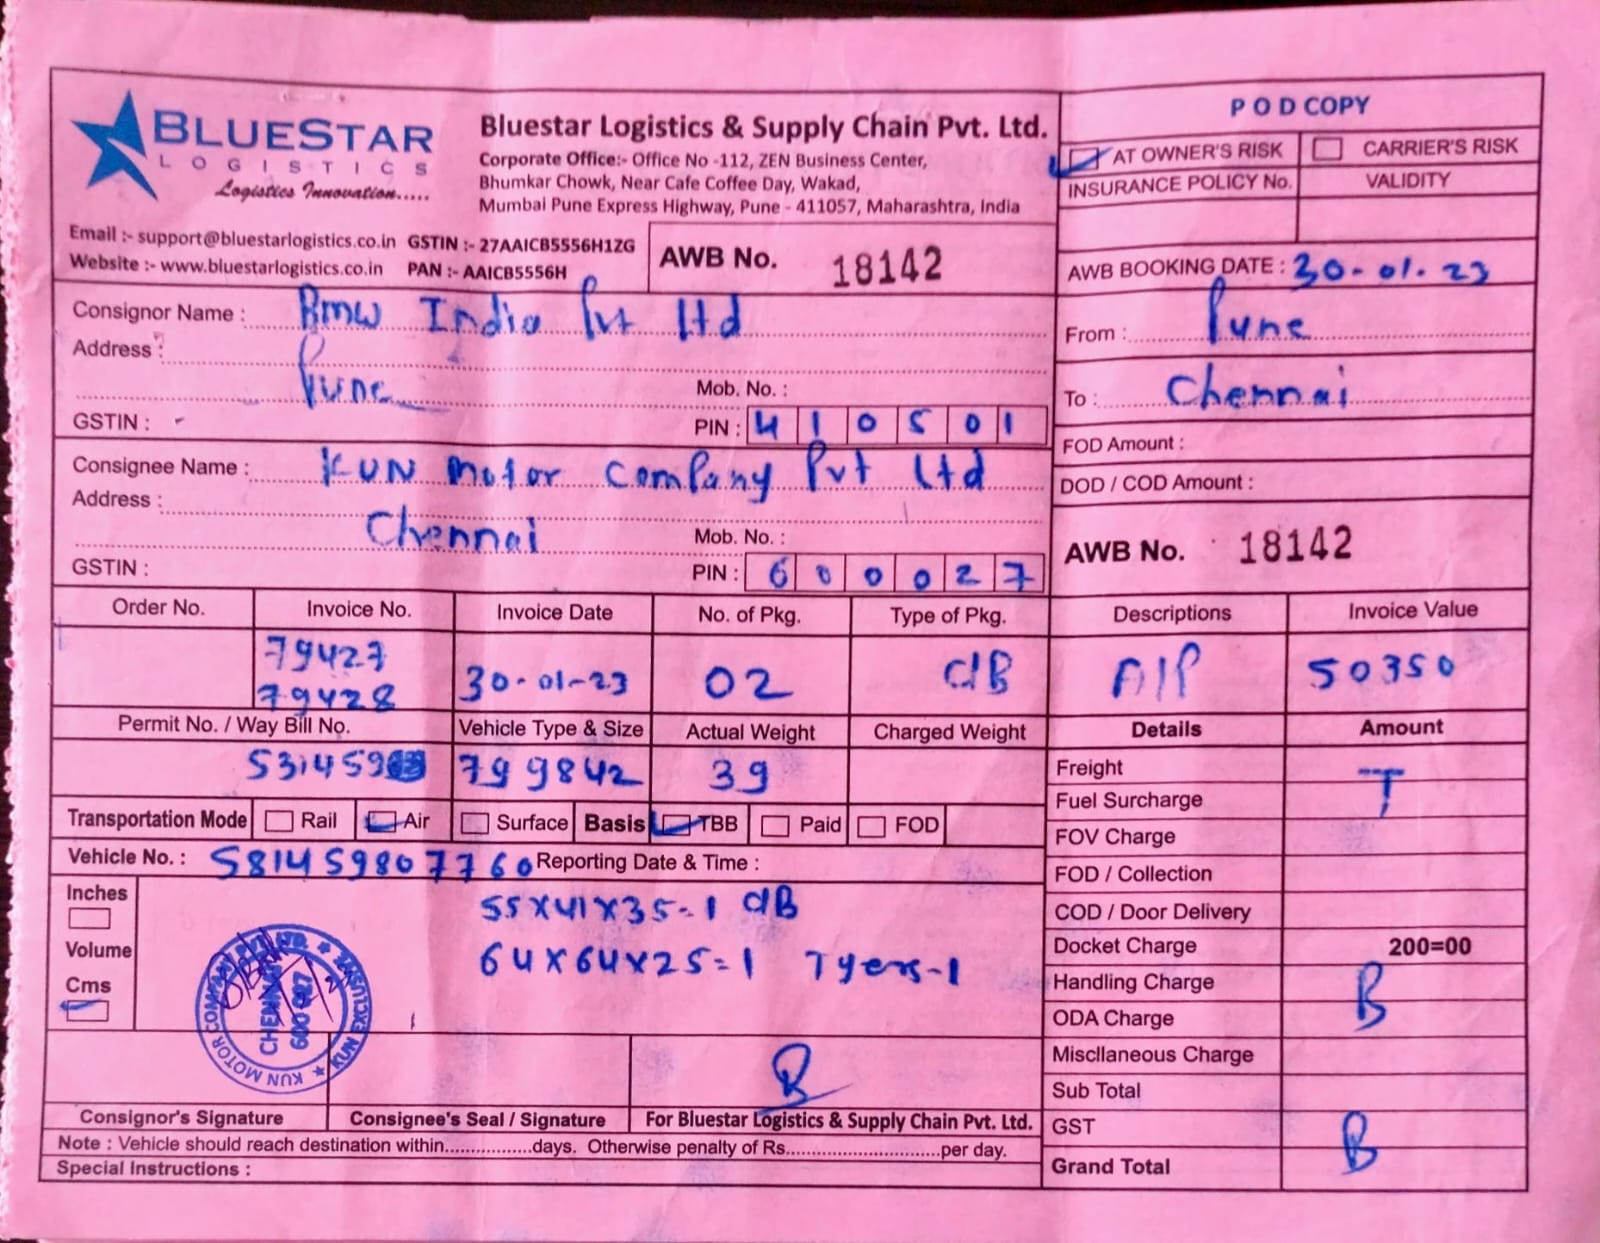 BLUESTAR
LOGISTICS
Logistics Innovation.....
Bluestar Logistics & Supply Chain Pvt. Ltd.
Corporate Office:- Office No -112, ZEN Business Center,
Bhumkar Chowk, Near Cafe Coffee Day, Wakad,
Mumbai Pune Express Highway, Pune - 411057, Maharashtra, India
POD COPY
AT OWNER'S RISK CARRIER'S RISK
INSURANCE POLICY No. VALIDITY
Email :- support@bluestarlogistics.co.in GSTIN :- 27AAICB5556H1ZG
Website :- www.bluestarlogistics.co.in PAN :- AAICB5556H
AWB No. 18142
AWB BOOKING DATE : 30-01-23
Consignor Name : Bmw India Pvt Ltd
Address :
Pune Mob. No. :
GSTIN : - PIN : 410501
From : Pune
To : Chennai
FOD Amount :
DOD / COD Amount :
Consignee Name : KUN Motor Company Pvt Ltd
Address :
Chennai Mob. No. :
GSTIN : PIN : 600027
AWB No. 18142
Order No. Invoice No. Invoice Date No. of Pkg. Type of Pkg. Descriptions Invoice Value
79427
79428 30-01-23 02 C/B A/P 50350
Permit No. / Way Bill No. Vehicle Type & Size Actual Weight Charged Weight Details Amount
799842 39
Freight T
Fuel Surcharge
Transportation Mode Rail Air Surface Basis TBB Paid FOD
FOV Charge
Vehicle No. : 581459807760 Reporting Date & Time :
FOD / Collection
Inches
55X41X35=1 C/B
COD / Door Delivery
Volume
64X64X25=1 Tyers-1
Docket Charge 200=00
Cms
Handling Charge B
ODA Charge
Miscllaneous Charge
Sub Total
KUN MOTOR COMPANY PVT. LTD. ★ KUN EXCLUSIVE ★
CHENNAI
600
Consignor's Signature Consignee's Seal / Signature For Bluestar Logistics & Supply Chain Pvt. Ltd.
GST B
Note : Vehicle should reach destination within.................days. Otherwise penalty of Rs..............................per day.
Grand Total
Special Instructions :